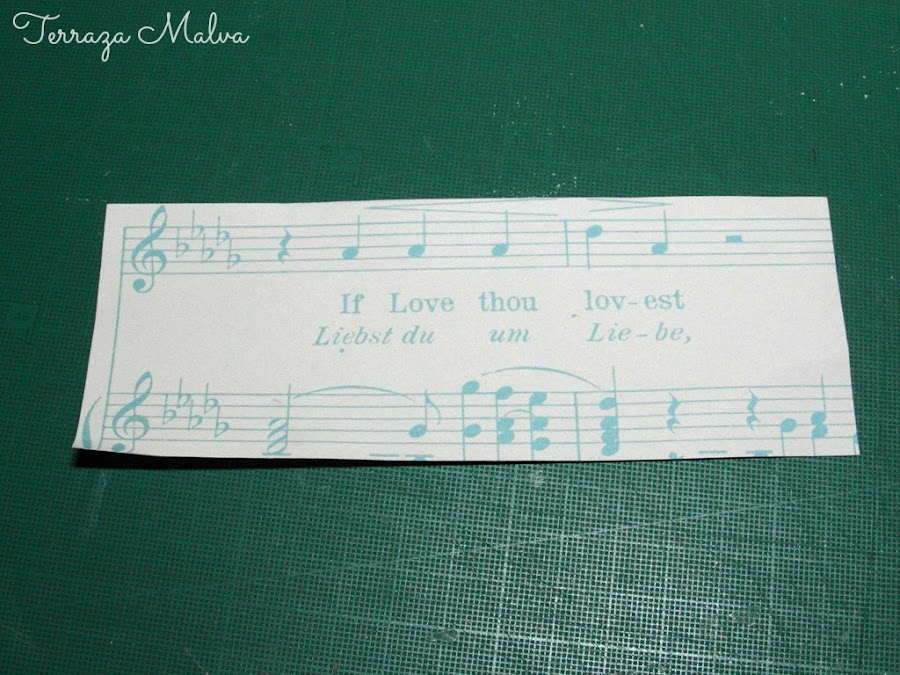 Terraza Malva
If Love thou lov-est
Liebst du um Lie-be,